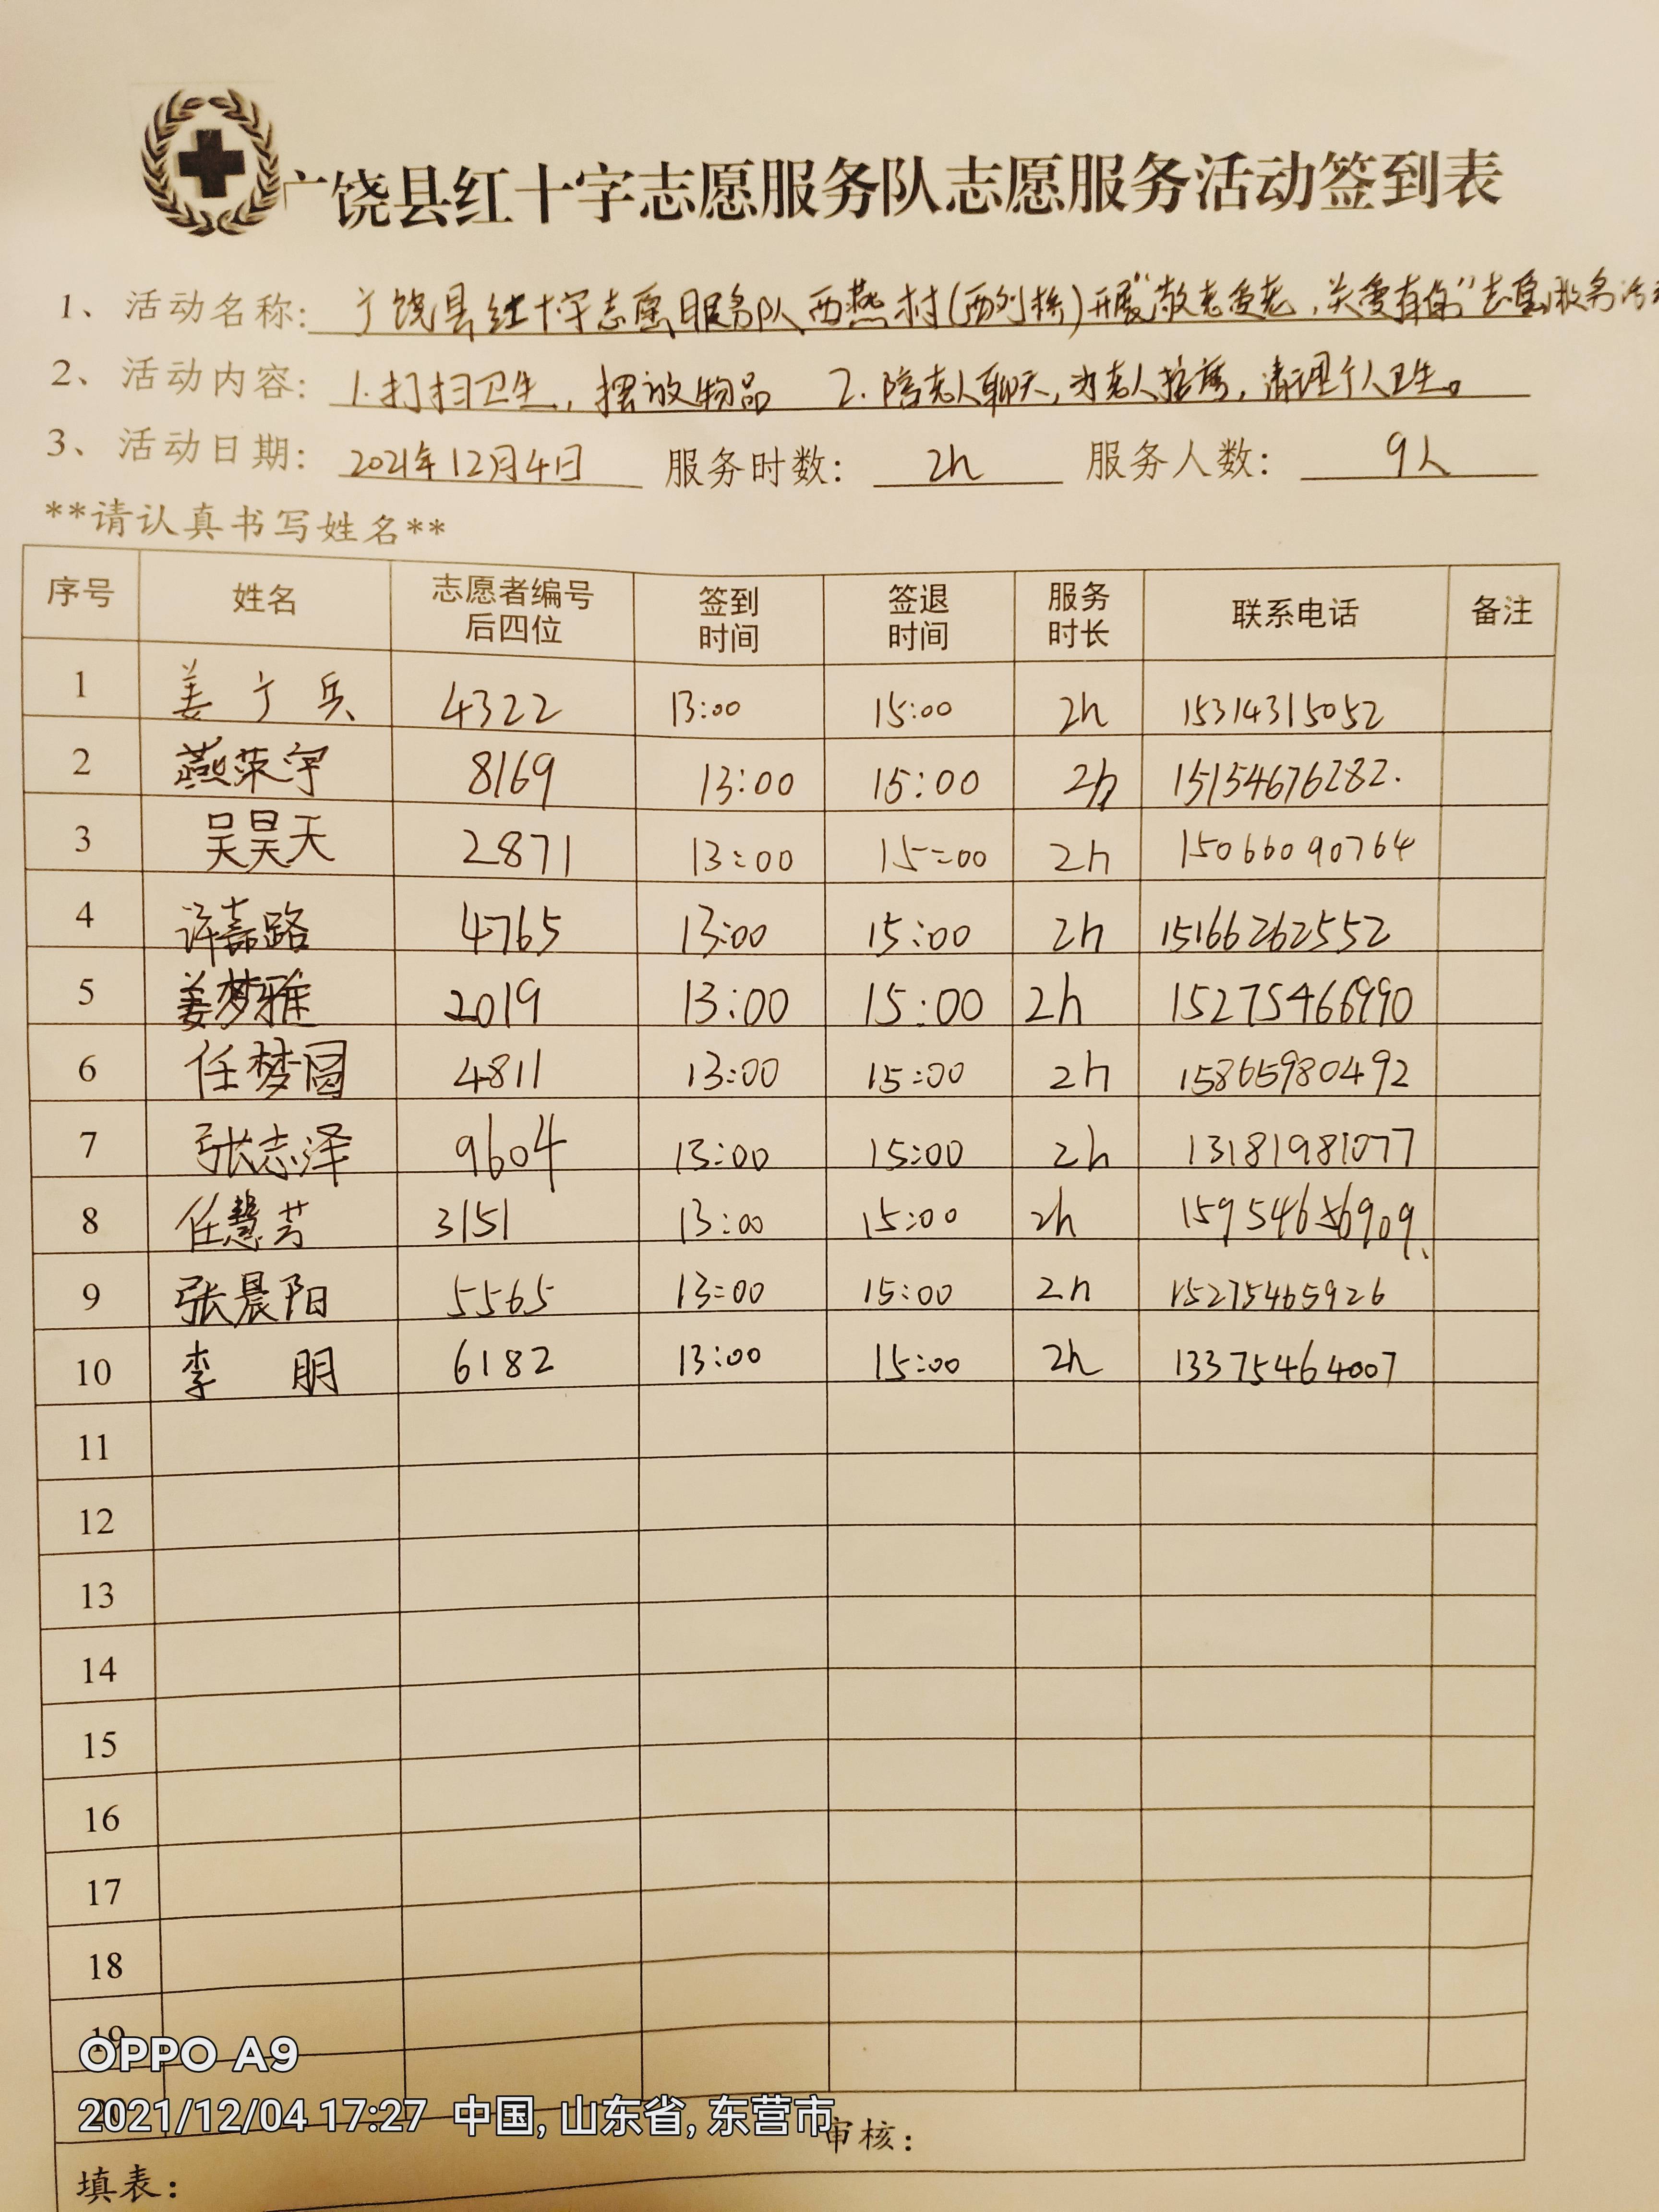 广饶县红十字志愿服务队志愿服务活动签到表
1、活动名称: 广饶县红十字志愿服务队西燕村(西刘桥)开展“敬老爱老,关爱有你”志愿服务活动
2、活动内容: 1.打扫卫生,摆放物品 2.陪老人聊天,为老人按摩,清理个人卫生。
3、活动日期: 2021年12月4日 服务时数: 2h 服务人数: 9人
**请认真书写姓名**
序号 姓名 志愿者编号后四位 签到时间 签退时间 服务时长 联系电话 备注
1 姜广兵 4322 13:00 15:00 2h 15314315052
2 燕荣宇 8169 13:00 15:00 2h 15154676282.
3 吴昊天 2871 13:00 15:00 2h 15066090764
4 许嘉路 4765 13:00 15:00 2h 15166262552
5 姜梦雅 2019 13:00 15:00 2h 15275466990
6 任梦圆 4811 13:00 15:00 2h 15865980492
7 张志泽 9604 13:00 15:00 2h 13181981077
8 任慧芳 3151 13:00 15:00 2h 15954656909
9 张晨阳 5565 13:00 15:00 2h 15275465926
10 李朋 6182 13:00 15:00 2h 13375464007
11
12
13
14
15
16
17
18
19
OPPO A9
2021/12/04 17:27 中国, 山东省, 东营市
审核:
填表: